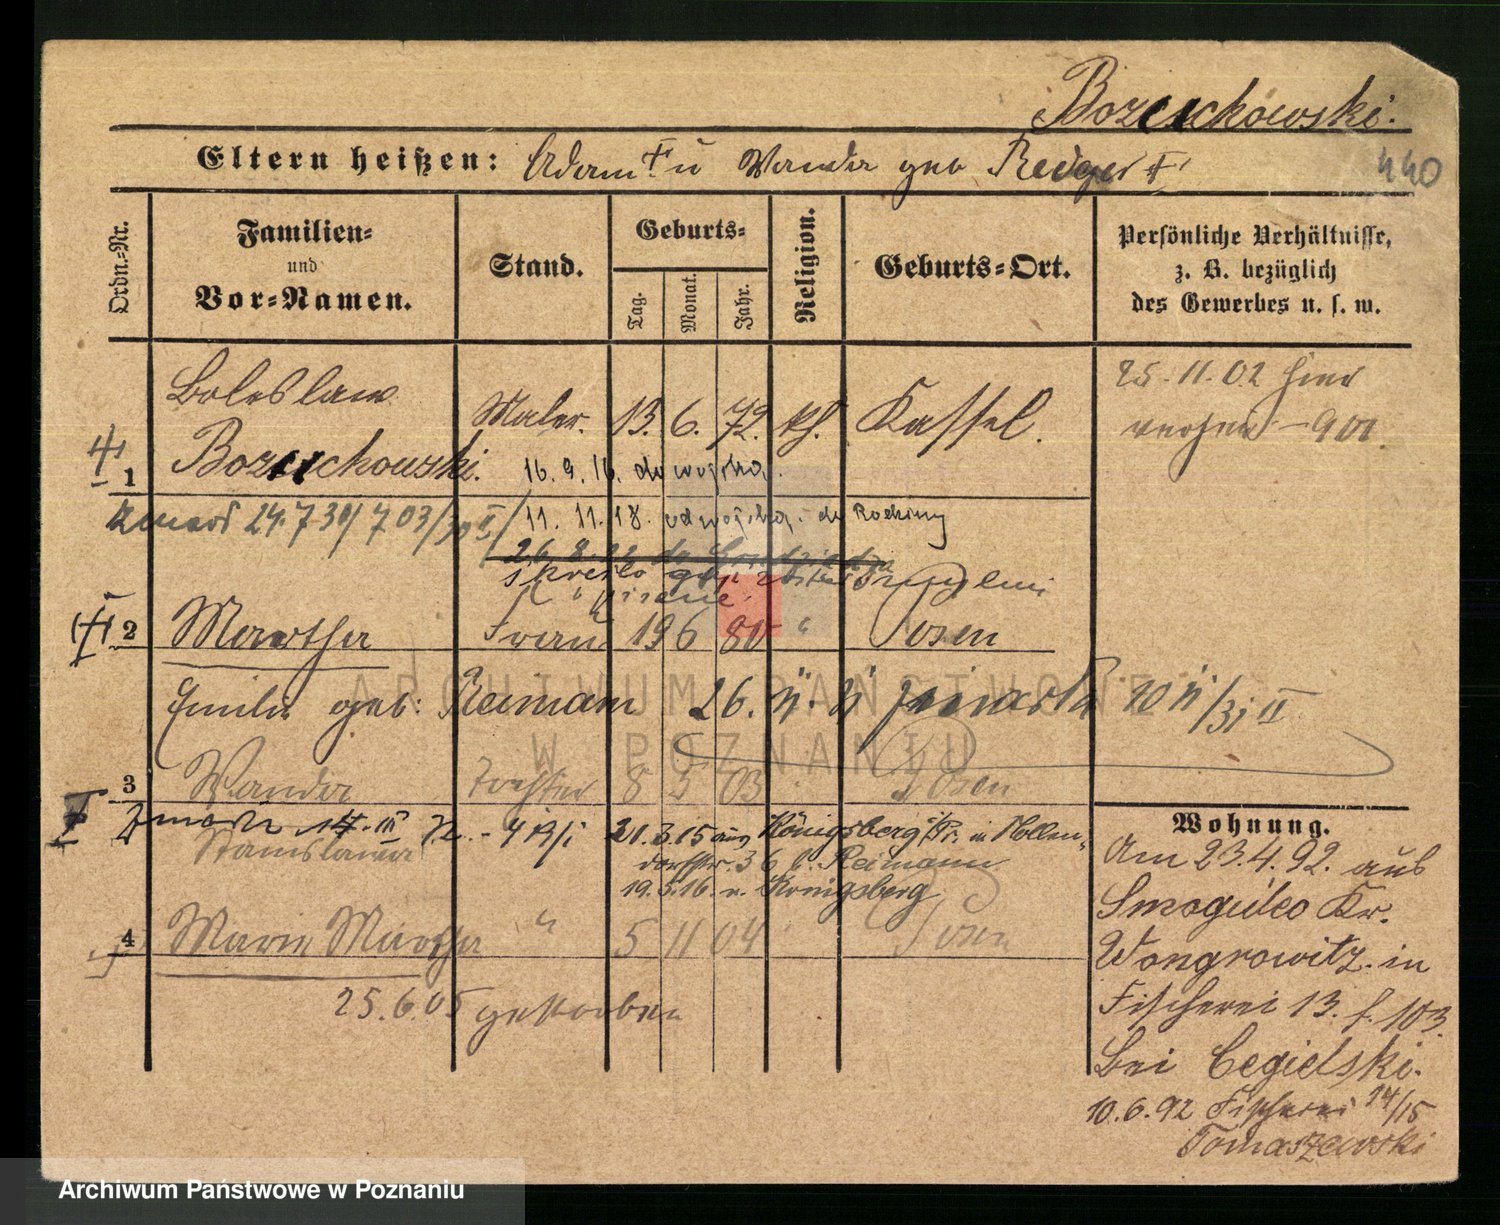 Bozuchowski.
Eltern heißen: Adam † u Wanda geb Rediger †
440
Ordn.-Nr.
Familien-
und
Vor-Namen.
Stand.
Geburts-
Tag.
Monat.
Jahr.
Religion.
Geburts-Ort.
Persönliche Verhältnisse,
z. B. bezüglich
des Gewerbes u. s. w.
Boleslaw
Bozuchowski.
1
Maler. 13. 6. 72. kh. Kassel.
25.11.02 hier
16. 9. 16. do wojska.
11. 11. 18. od wojska. do Rodziny
2 Martha Frau 19 6 80 " Posen
Emilie geb: Reimann
3 Wanda Tochter 8 5 03 Posen
Stanislawa
21.3.15 aus Königsberg i/Pr. in Hollen-
dorffstr. 36 b. Reimann
19.5.16. n. Königsberg
4 Marie Martha " 5 11 04 Posen
25.6.05 gestorben
Wohnung.
Am 23.4.92. aus
Smogulec Kr.
Wongrowitz. in
Fischerei 13. f. 103.
bei Cegielski.
10.6.92 Fischerei 14/15
Tomaszewski
ARCHIWUM PAŃSTWOWE
W POZNANIU
Archiwum Państwowe w Poznaniu